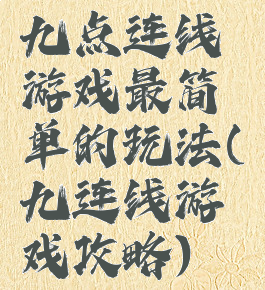 九点连线
游戏最简
单的玩法(
九连线游
戏攻略)